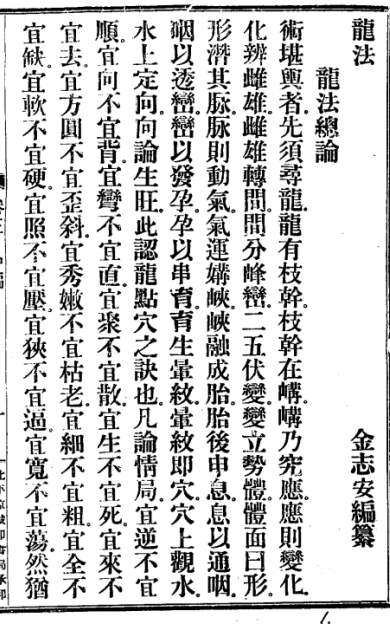 龍法 金志安編纂
龍法總論
術堪輿者先須尋龍龍有枝幹。枝幹在乃究應。應則變化。
化辨雌雄。雌雄轉間。間分峰巒。二五伏變。變立勢體。體面曰形。
形潛其脉。脉則動氣。氣運媾峽。峽融成胎。胎後申息。息以通咽。
咽以透巒。巒以發孕。孕以串育。育生暈紋。暈紋即穴。穴上觀水。
水上定向。向論生旺。此認龍點穴之訣也。凡論情局。宜逆不宜
順。宜向不宜背。宜彎不宜直。宜聚不宜散。宜生不宜死。宜來不
宜去。宜方圓不宜歪斜。宜秀嫩不宜枯老。宜細不宜粗。宜全不
宜缺。宜軟不宜硬。宜照不宜壓。宜狹不宜逼。宜寬不宜蕩。然猶